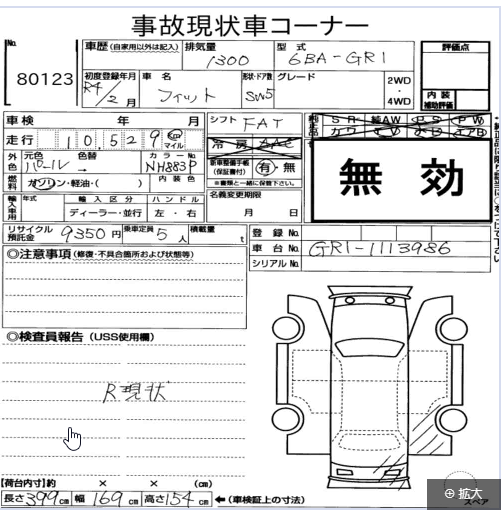 事故現状車コーナー
No.
80123
車歴 (自家用以外は記入) 排気量 型式
1300 6BA-GR1
評価点
初度登録年月 車名 形状・ドア数 グレード
R4/2月 フィット 5W5
2WD
・
4WD
内装
補助評価
車検 年 月
シフト FAT
純正品 SR 純AW PS PW
カワ TV ナビ エアB
走行 10,529 km マイル
冷房 AAC
外色 元色 色替 カラーNo.
パール → NH883P
車両整備手帳
(保証書付) 有・無
※書類と一緒に保管下さい。
燃料 ガソリン・軽油・( ) 内装色
無効
輸入車用 年式 輸入区分 ハンドル
ディーラー・並行 左・右
名義変更期限
月 日
リサイクル預託金 9350円 乗車定員 5人 積載量 t
登録No.
車台No. GR1-1113986
シリアルNo.
◎注意事項 (修復・不具合箇所および状態等)
◎検査員報告 (USS使用欄)
R現状
【荷台内寸】約 × × (cm)
長さ399cm 幅169cm 高さ154cm ←(車検証上の寸法)
スペア
拡大